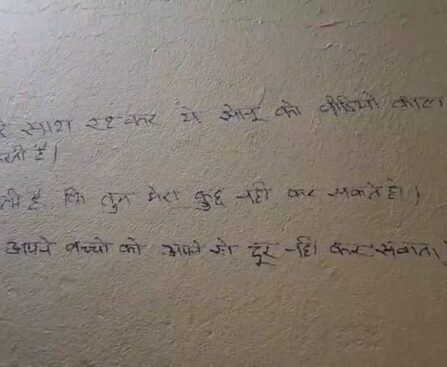 साथ रहकर ये सोनू को वीडियो काल
करती है।
है कि तुम मेरा कुछ नही कर सकते हो।
अपने बच्चो को अपने से दूर नहि कर सकता,